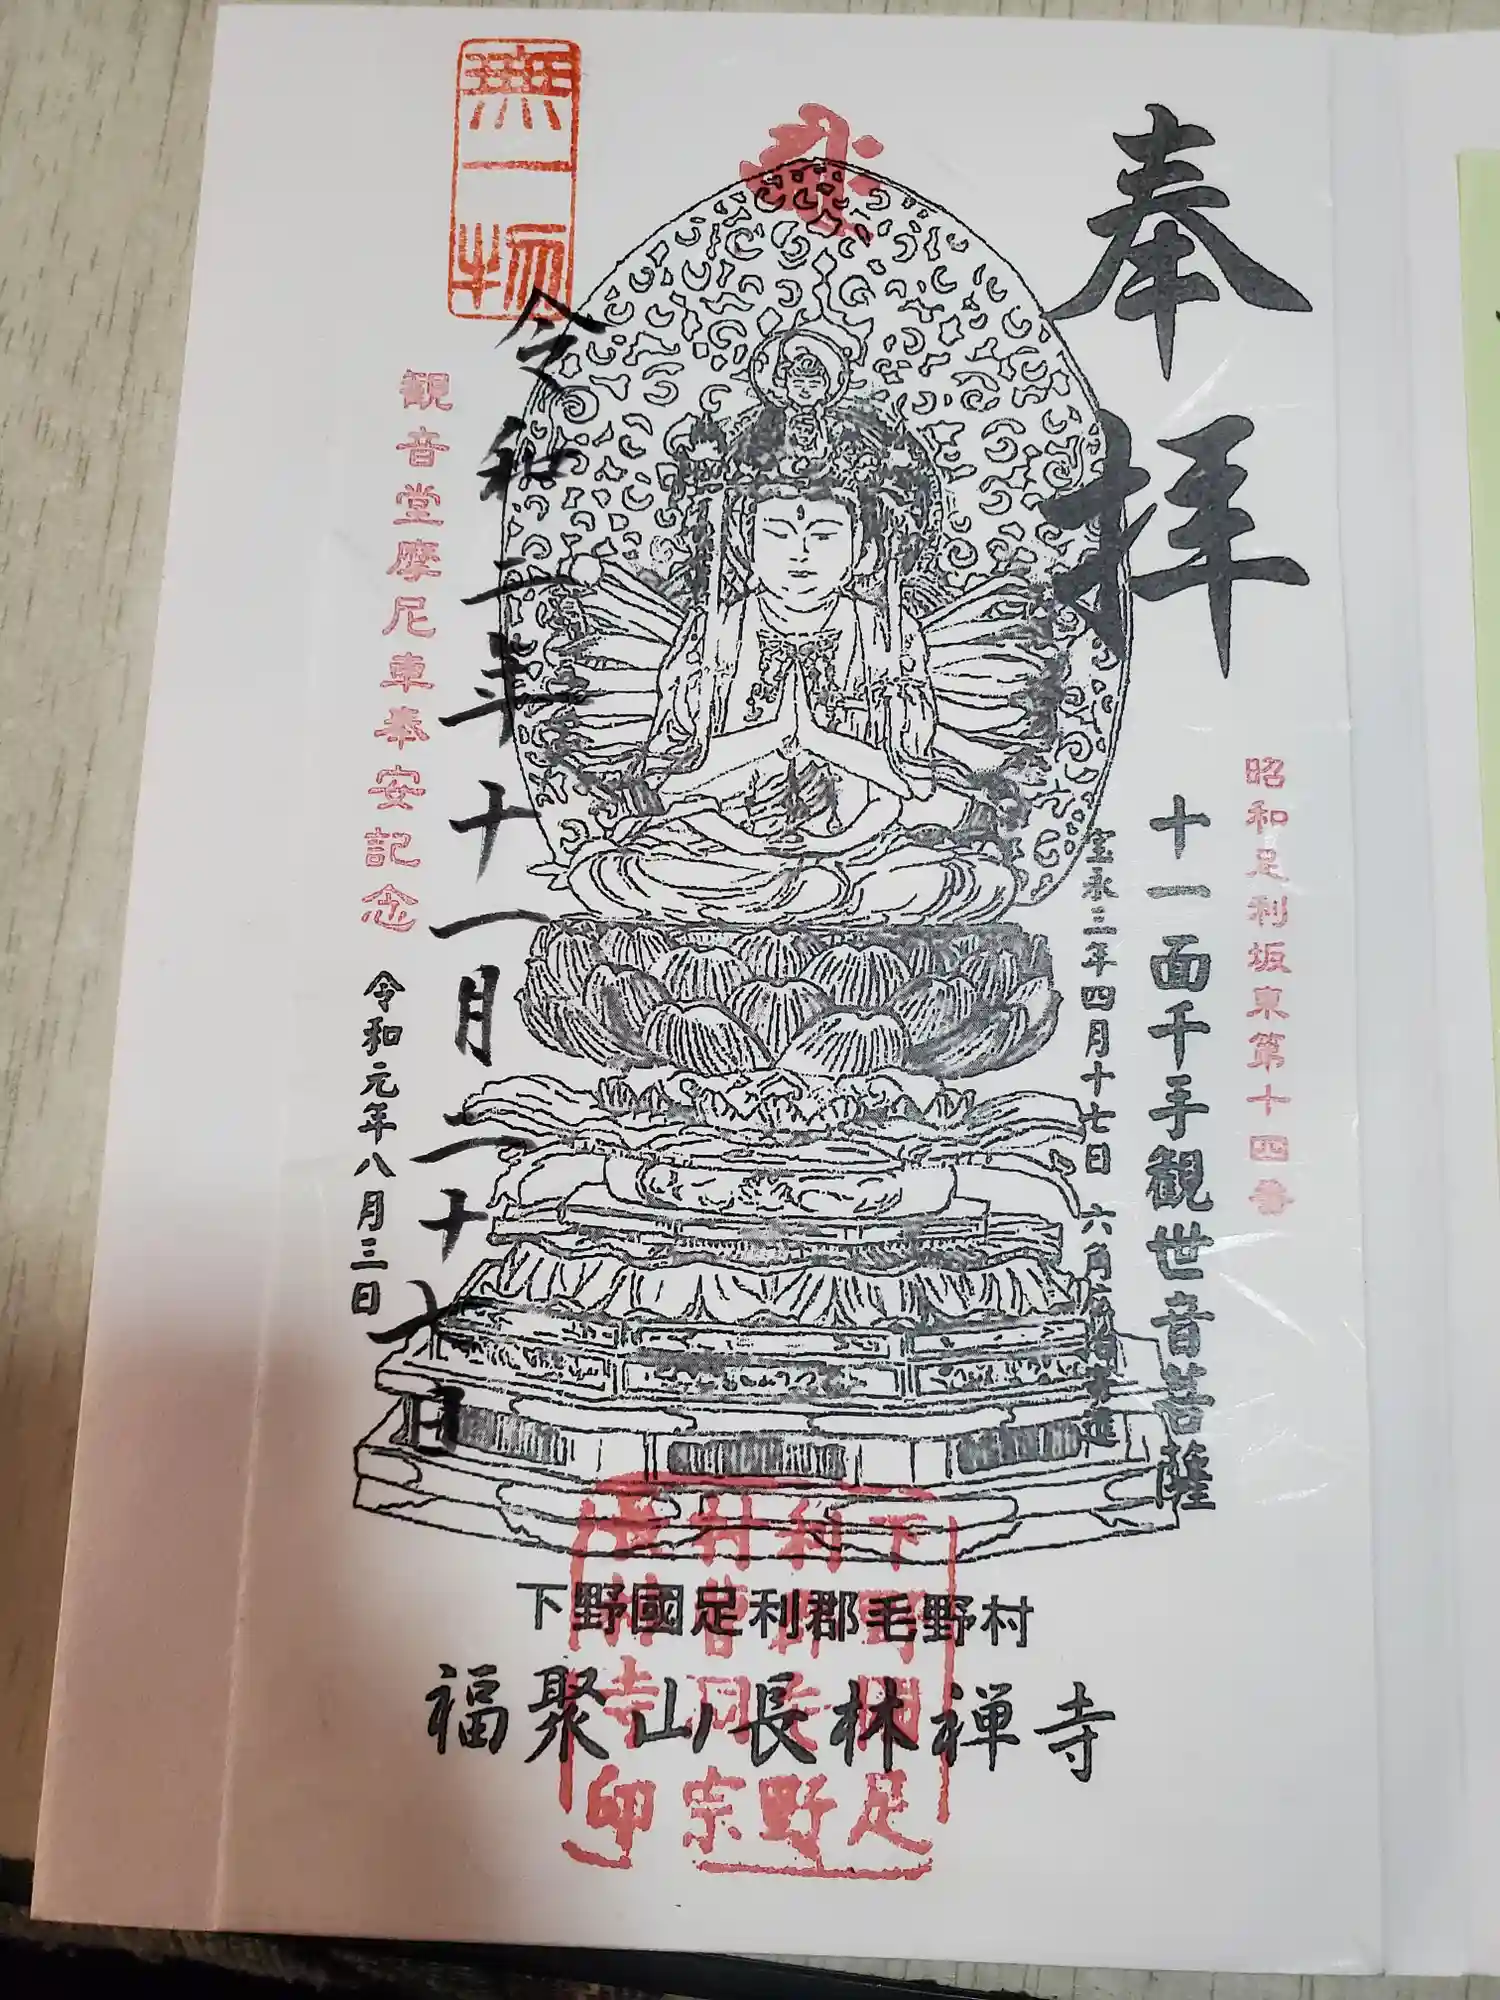 奉拝
昭和足利坂東第十四番
十一面千手観世音菩薩
宝永三年四月十七日 六角
無一物
令和二年十一月二十七日
観音堂摩尼車奉安記念
令和元年八月三日
下野國足利郡毛野村
福聚山長林禅寺